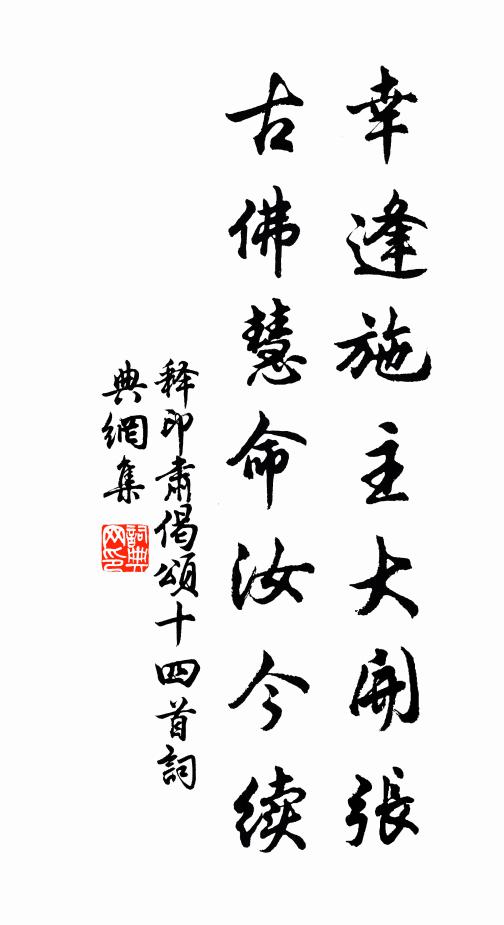 幸逢施主大開張
古佛慧命汝今续
释印肃偈頌十四首詞
典網集
詞典
网印